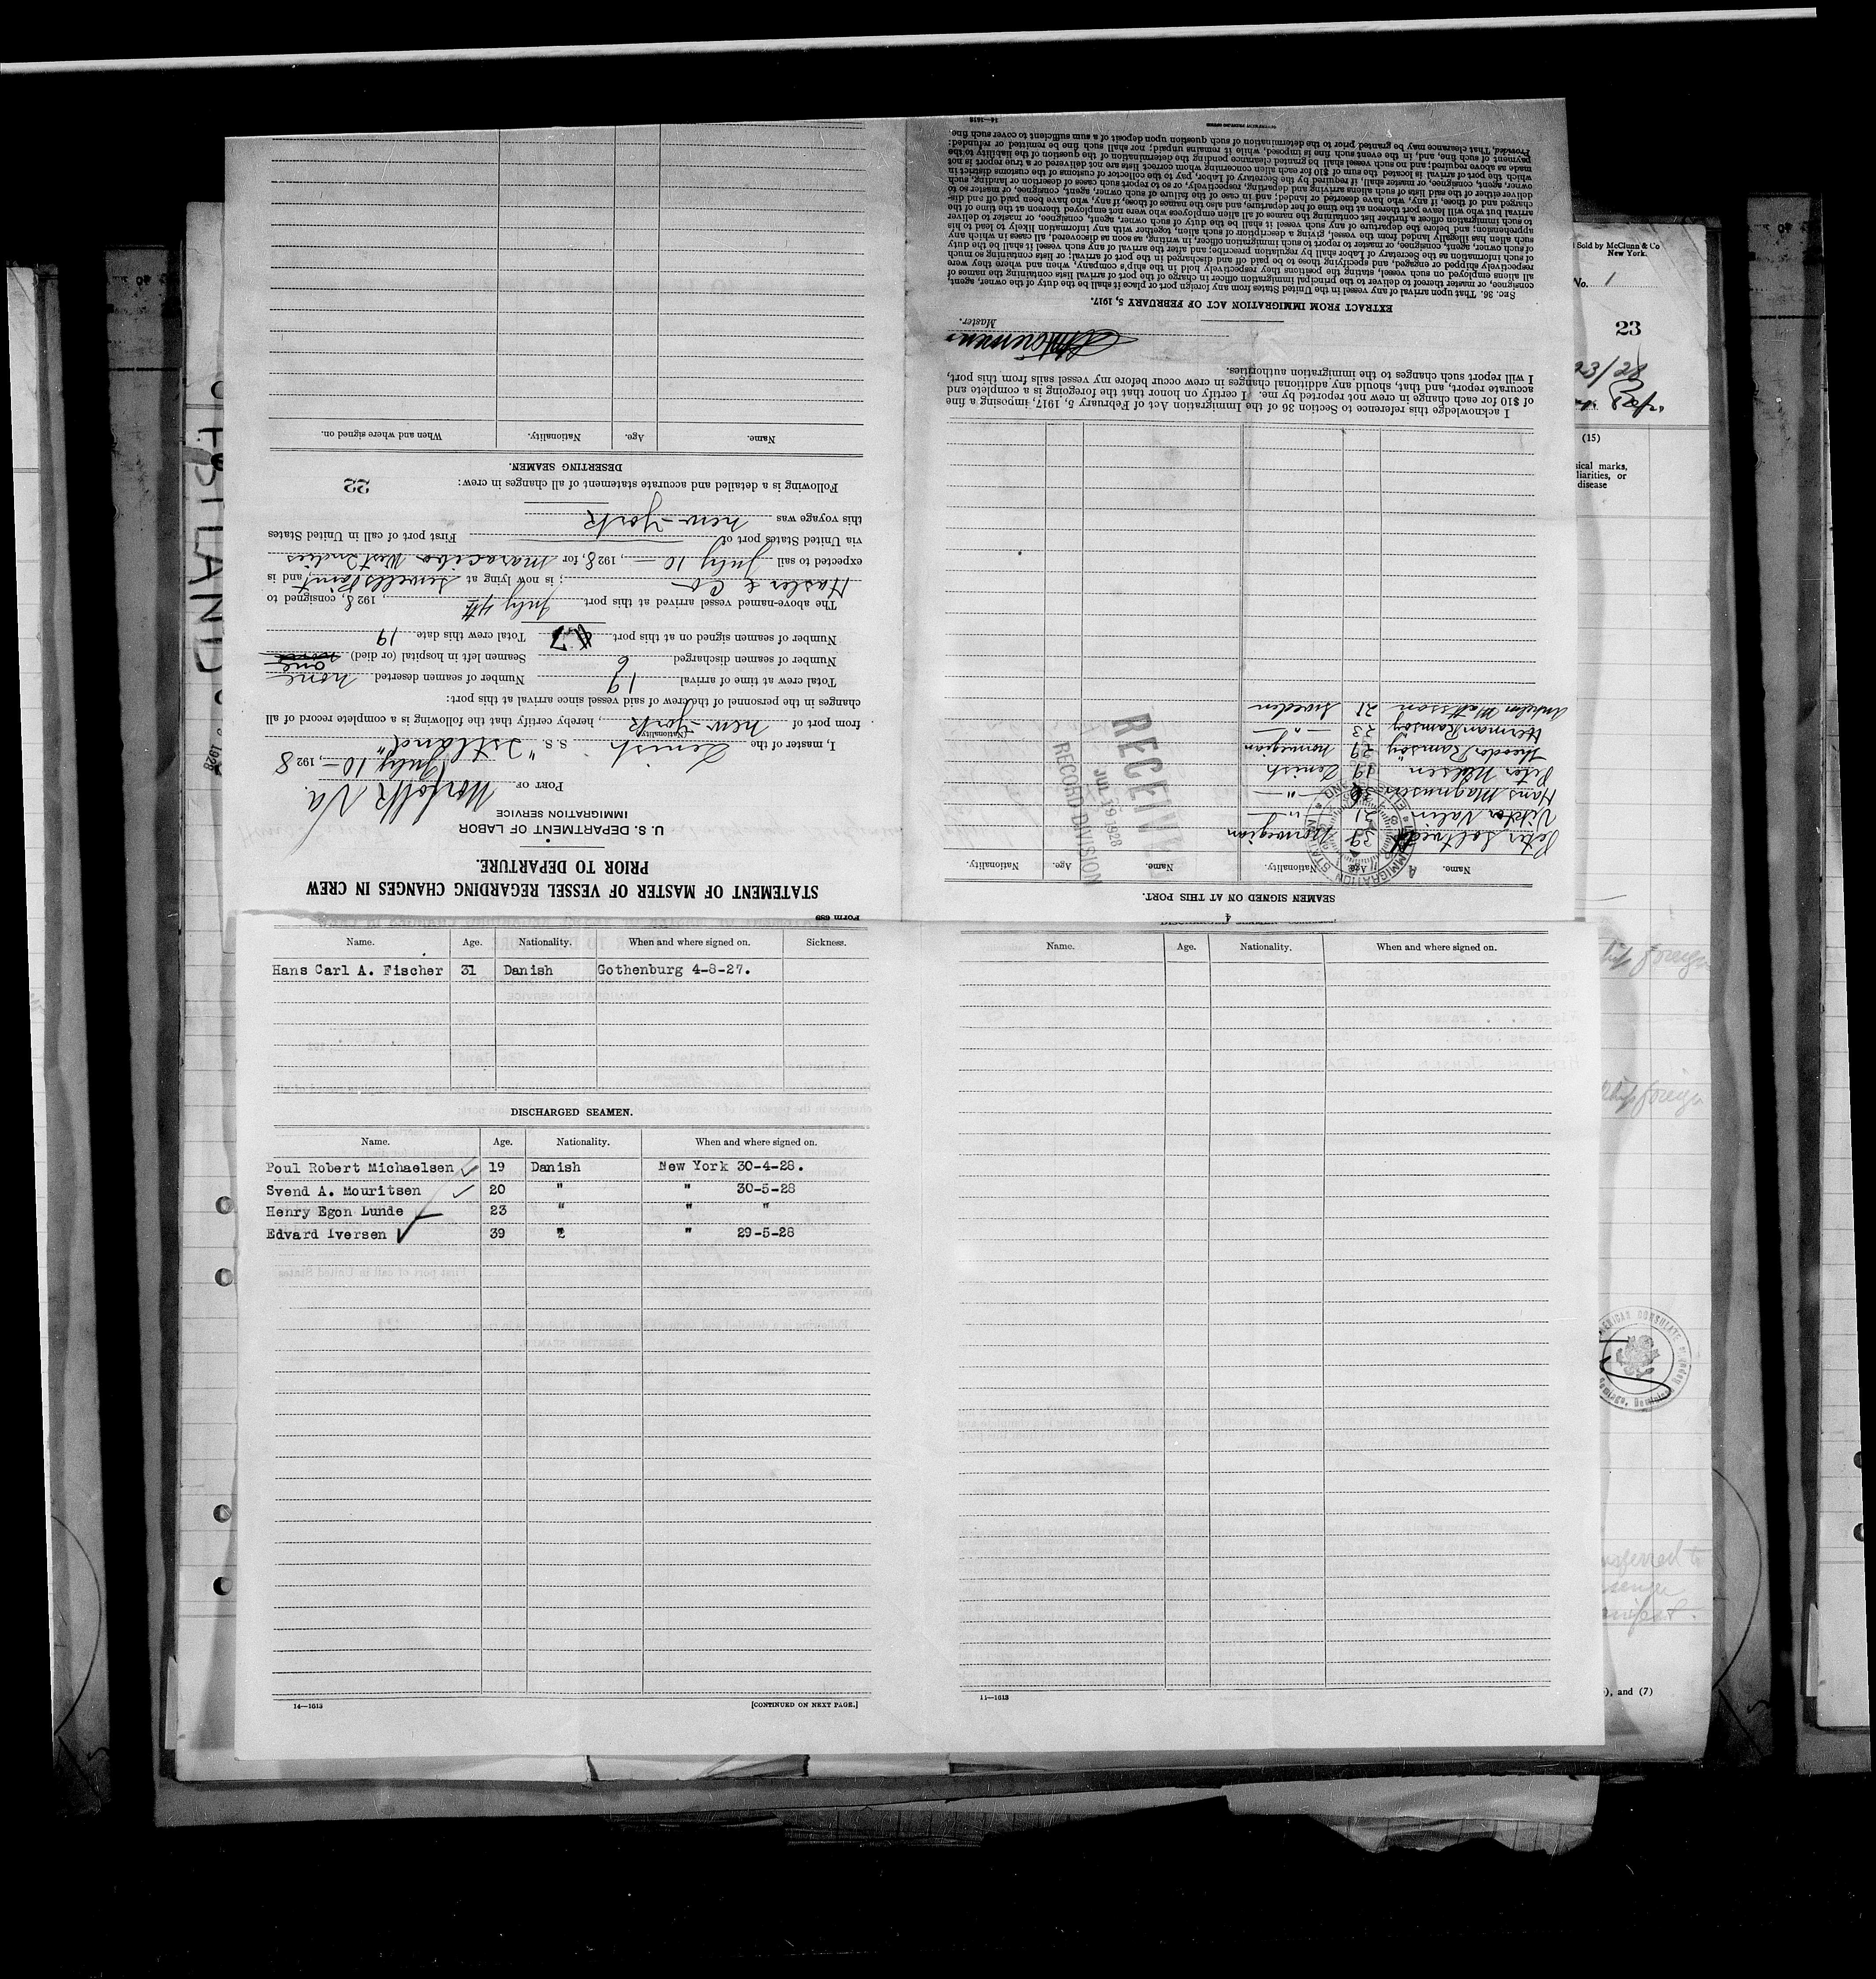 Form 689
STATEMENT OF MASTER OF VESSEL REGARDING CHANGES IN CREW
PRIOR TO DEPARTURE.
U. S. DEPARTMENT OF LABOR
IMMIGRATION SERVICE
PORT OF Norfolk Va.
July 10 —, 1928
I, master of the Denish S. S. "Istland"
(Nationality)
from port of New-York, hereby certify that the following is a complete record of all
changes in the personnel of the crew of said vessel since arrival at this port:
Total crew at time of arrival 19 Number of seamen deserted none
Number of seamen discharged 6 Seamen left in hospital (or died) one
Number of seamen signed on at this port 7 Total crew this date 19
The above-named vessel arrived at this port July 4th, 1928, consigned to
Hasler & Co; is now lying at Sewells Point, and is
expected to sail July 10 —, 1928, for Maracibo West Indies
via United States port of First port of call in United States
this voyage was New-York
Following is a detailed and accurate statement of all changes in crew:
22
DESERTING SEAMEN.
Name. Age. Nationality. When and where signed on.
4
SEAMEN SIGNED ON AT THIS PORT.
Name. Age. Nationality. Name. Age. Nationality.
Peter 39 Norwegian
Viktor Valin 21 — " —
Hans Magnusen 36 — " —
Peter Nielsen Denish
Theodor Ramsöy 29 Norwegian
Herman Ramsöy 23 — " —
Mattsson 21 Sweden
RECEIVED
JUL 19 1928
RECORD DIVISION
I acknowledge this reference to Section 36 of the Immigration Act of February 5, 1917, imposing a fine
of $10 for each change in crew not reported by me. I certify on honor that the foregoing is a complete and
accurate report, and that, should any additional changes in crew occur before my vessel sails from this port,
I will report such changes to the immigration authorities.
Master.
EXTRACT FROM IMMIGRATION ACT OF FEBRUARY 5, 1917.
SEC. 36. That upon arrival of any vessel in the United States from any foreign port or place it shall be the duty of the owner, agent,
consignee, or master thereof to deliver to the principal immigration officer in charge of the port of arrival lists containing the names of
all aliens employed on such vessel, stating the positions they respectively hold in the ship's company, when and where they were
respectively shipped or engaged, and specifying those to be paid off and discharged in the port of arrival; or lists containing so much
of such information as the Secretary of Labor shall by regulation prescribe; and after the arrival of any such vessel it shall be the duty
of such owner, agent, consignee, or master to report to such immigration officer, in writing, as soon as discovered, all cases in which any
such alien has illegally landed from the vessel, giving a description of such alien, together with any information likely to lead to his
apprehension; and before the departure of any such vessel it shall be the duty of such owner, agent, consignee, or master to deliver
to such immigration officer a further list containing the names of all alien employees who were not employed thereon at the time of the
arrival but who will leave port thereon at the time of her departure, and also the names of those, if any, who have been paid off and dis-
charged and of those, if any, who have deserted or landed; and in case of the failure of such owner, agent, consignee, or master so to
deliver either of the said lists of such aliens arriving and departing, respectively, or so to report such cases of desertion or landing, such
owner, agent, consignee, or master shall, if required by the Secretary of Labor, pay to the collector of customs of the customs district in
which the port of arrival is located the sum of $10 for each alien concerning whom correct lists are not delivered or a true report is not
made as above required; and no such vessel shall be granted clearance pending the determination of the question of the liability to the
payment of such fine, and, in the event such fine is imposed, while it remains unpaid; nor shall such fine be remitted or refunded:
Provided, That clearance may be granted prior to the determination of such question upon deposit of a sum sufficient to cover such fine.
14—1613
Name. Age. Nationality. When and where signed on. Sickness.
Hans Carl A. Fischer 31 Danish Gothenburg 4-8-27.
DISCHARGED SEAMEN.
Name. Age. Nationality. When and where signed on.
Poul Robert Michaelsen 19 Danish New York 30-4-28.
Svend A. Mouritsen 20 " " 30-5-28
Henry Egon Lunde 23 " " "
Edvard Iversen 39 " " 29-5-28
14—1613
[CONTINUED ON NEXT PAGE.]
Name. Age. Nationality. When and where signed on.
11—1613
Sold by McClunn & Co
New York.
No. 1
23
23/28
(15)
marks,
or
disease
foreign
foreign
AMERICAN CONSULATE
), and (7)